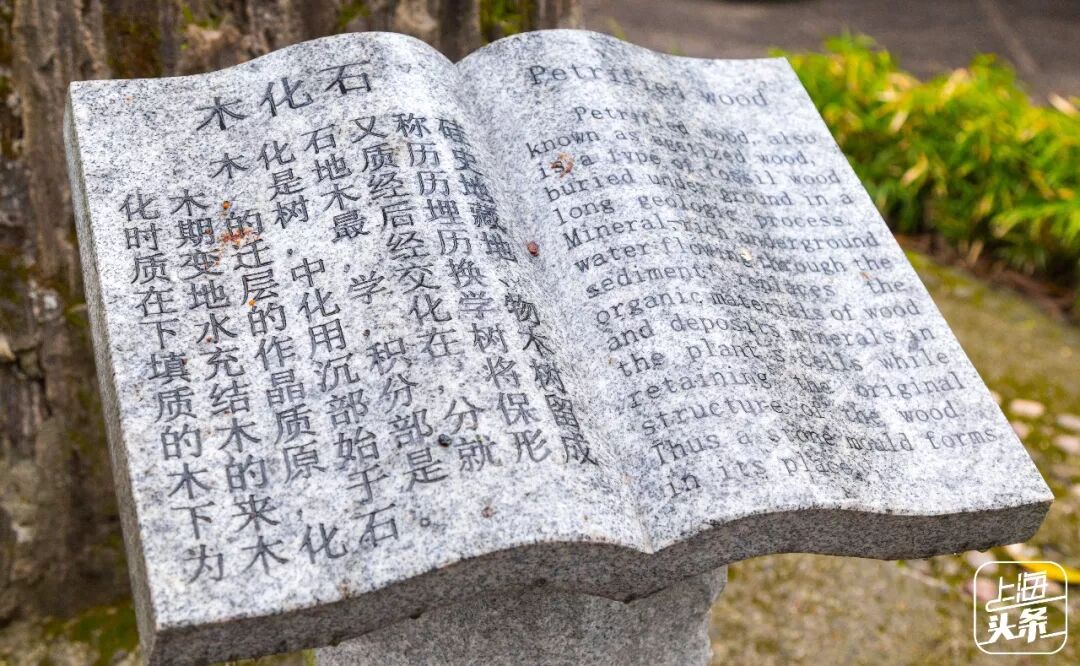 木化石
木化石又称硅
化木，是地质历史
时期的树木经历地
质变迁，最后埋藏
在地层中，经历地
下水的化学交换、
填充作用，化学物
质结晶沉积在树木
的木质部分，将树
木的原始部分保留
下来，于是就形成
为木化石。
Petrified wood
Petrified wood, also
known as agatized wood,
is a type of fossil wood
buried underground in a
long geologic process.
Mineral-rich underground
water flowing through the
sediment replaces the
organic materials of wood
and deposits minerals in
the plant's cells while
retaining the original
structure of the wood
Thus a stone mould forms
in its place.
上海
头条